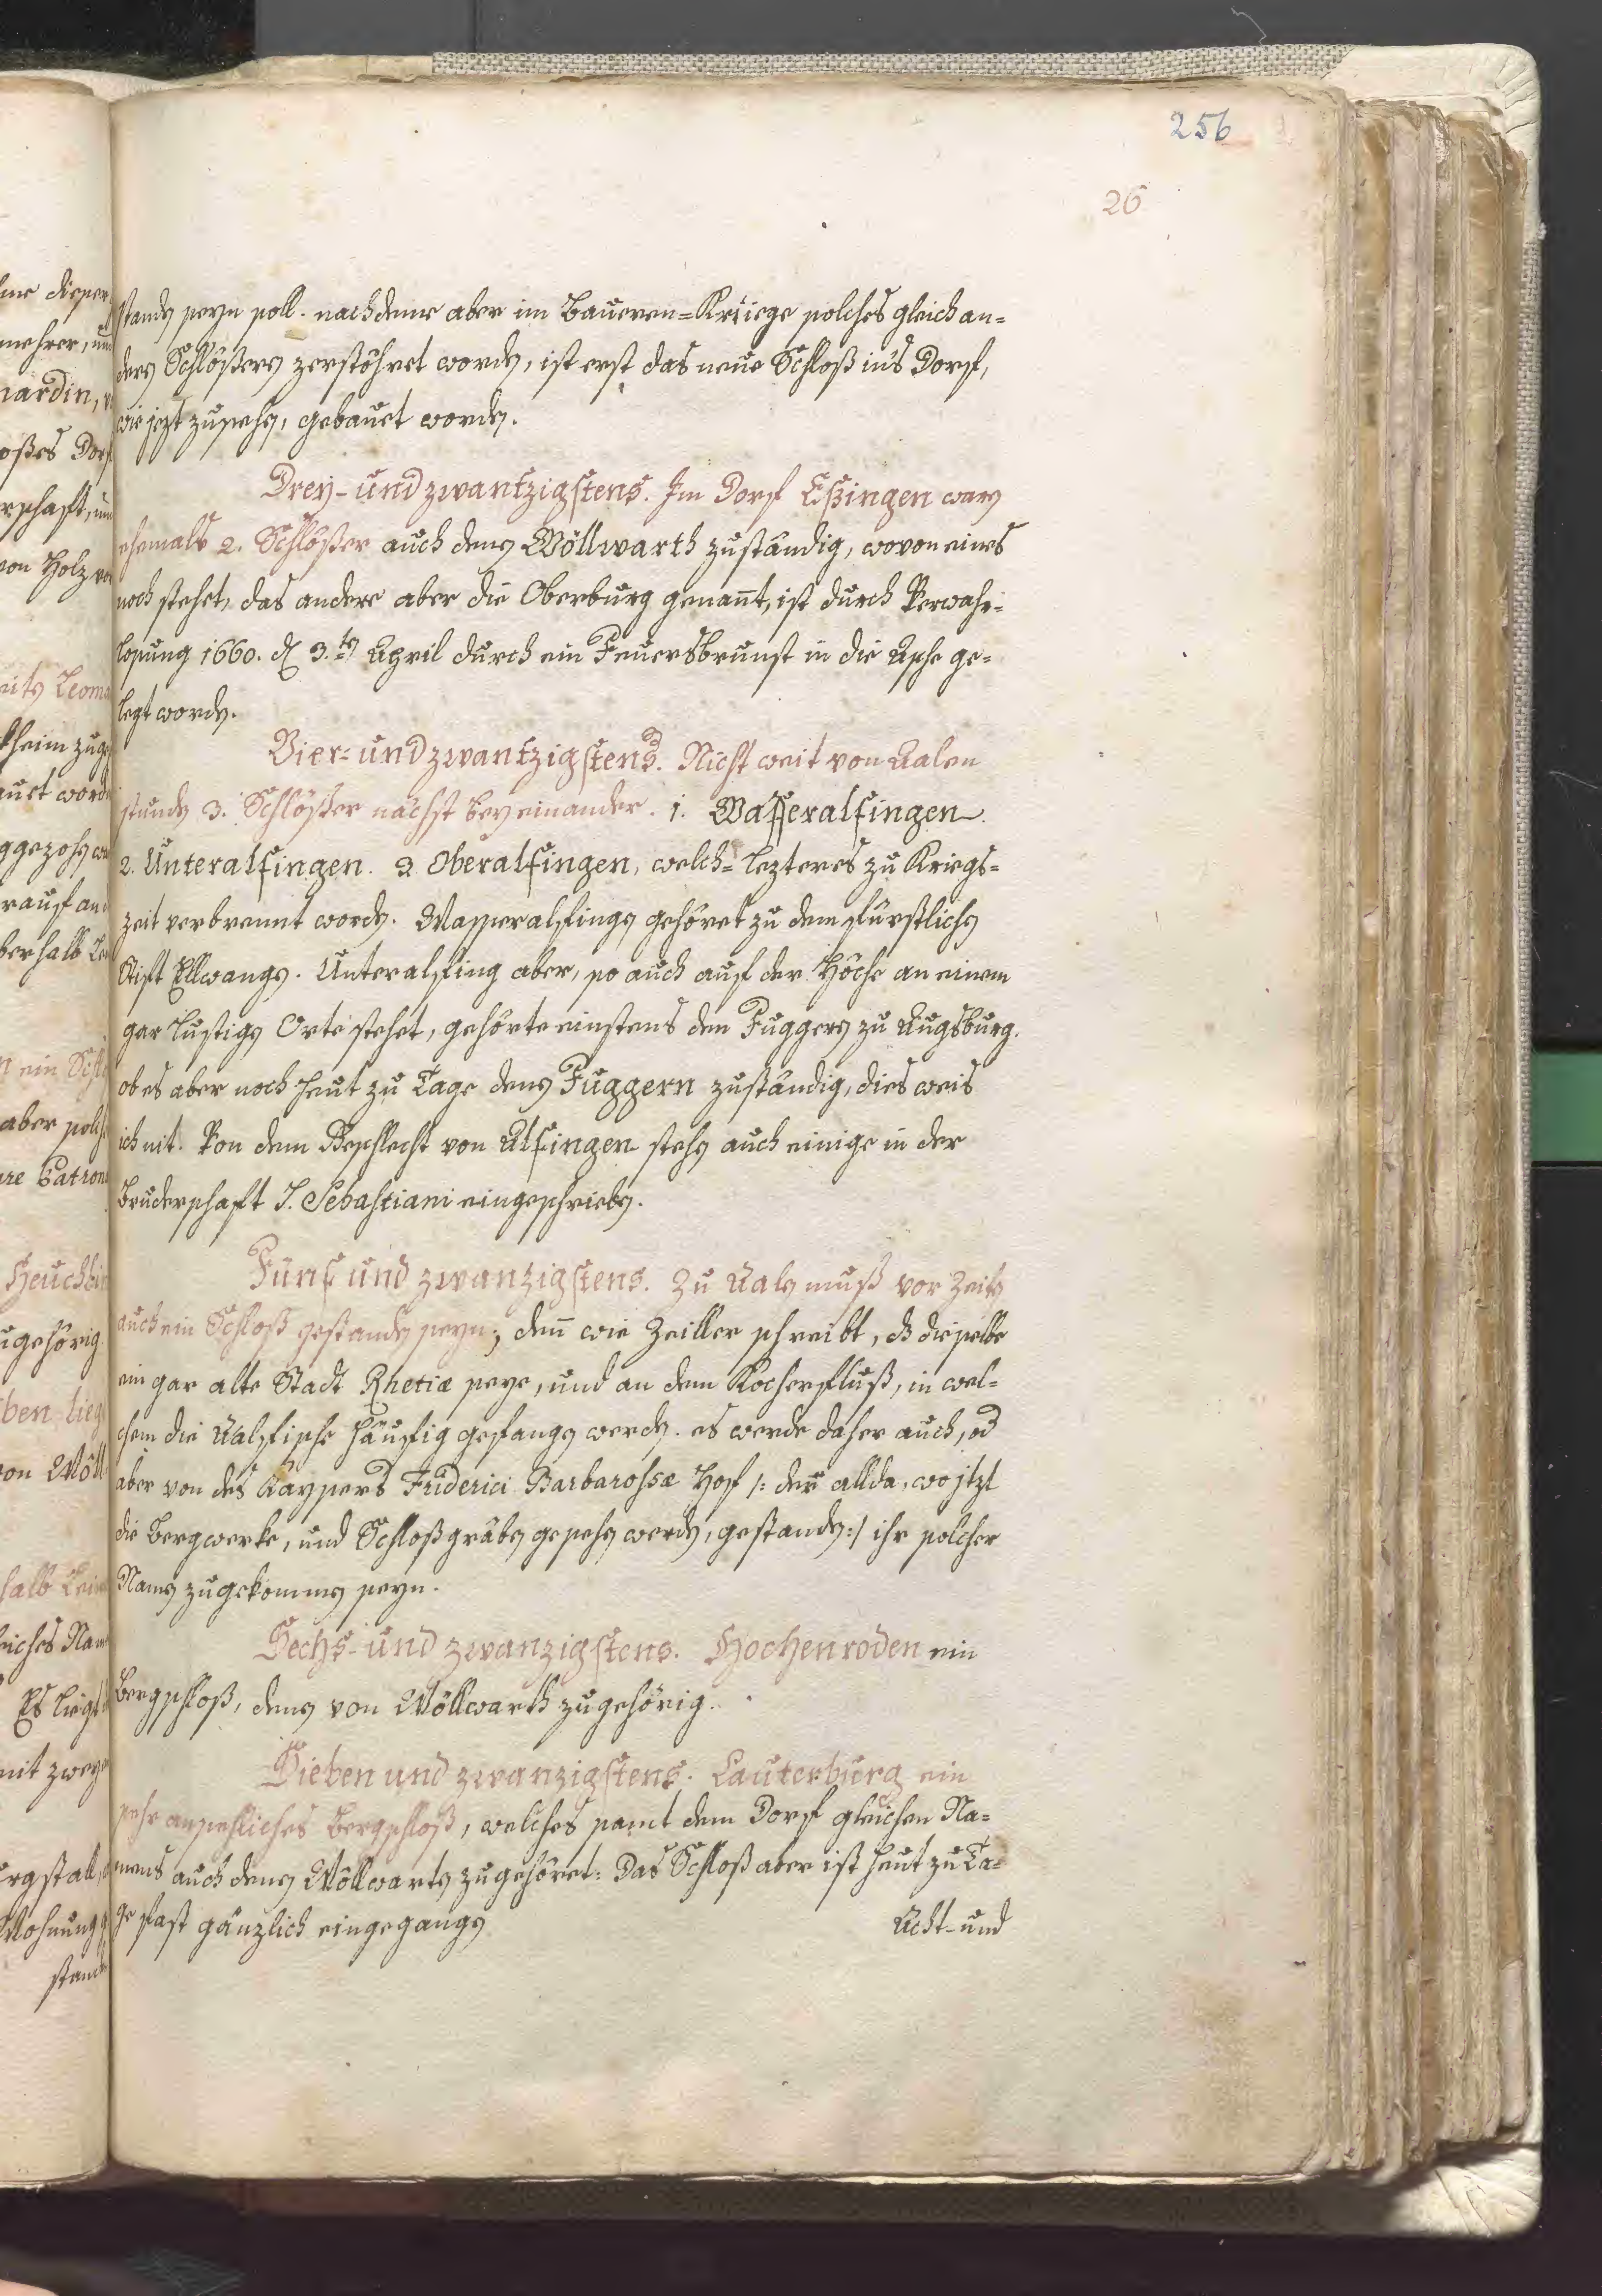 256
26
standen seyn soll. nachdeme aber im Baueren=Kriege solches gleich an=
dern Schlößern zerstöhret worden, ist erst das neue Schloß in's Dorf,
wie jezt zusehen, gebauet worden.
Drey-und zwantzigstens. Im Dorf Eßingen waren
ehemals 2. Schlößer auch denen Wöllwarth zuständig, wovon eines
noch stehet, das andere aber die Oberburg genañt, ist durch Verwahr=
losung 1660. den 3.ten April durch ein Feuersbrunst in die Asche ge=
legt worden.
Vier=und zwantzigstens. Nicht weit von Aalen
stunden 3. Schlößer nächst bey einander. 1. Wasseralfingen
2. Unteralfingen. 3 Oberalfingen, welch=lezteres zu Kriegs=
zeit verbrennt worden. Wasseralfingen gehöret zu dem fürstlichen
Stift Ellwangen. Unteralfing aber, so auch auf der Höche an einem
gar lustigen Orte stehet, gehörte einstens den Fuggern zu Augsburg.
ob es aber noch heut zu Tage denen Fuggern zuständig, dies weis
ich nit. Von dem Geschlecht von Alfingen stehen auch einige in der
Bruderschaft S. Sebastiani eingeschrieben.
Fünf und zwanzigstens. Zu Aalen muß vor Zeiten
auch ein Schloß gestanden seyn; deñ wie Zeiller schreibt, daß dieselbe
ein gar alte Stadt Rhetiæ seye, und an dem Kocherfluß, in wel=
chem die Aalfische häufig gefangen werden. es werde daher auch, od
aber von des Kaysers Friderici Barbarossæ Hof /: der allda, wo jtzt
die Bergwerke, und Schloßgräben gesehen werden, gestanden :/ ihr solcher
Namen zugekommen seyn.
Sechs-und zwanzigstens. Hochenroden ein
Bergschloß, denen von Wöllwarth zugehörig.
Sieben und zwanzigstens. Lauterburg ein
sehr ansehliches Bergschloß, welches samt dem Dorf gleichen Na=
mens auch denen Wöllwarten zugehöret: Das Schloß aber ist heut zu Ta=
ge fast gänzlich eingegangen
Acht-und